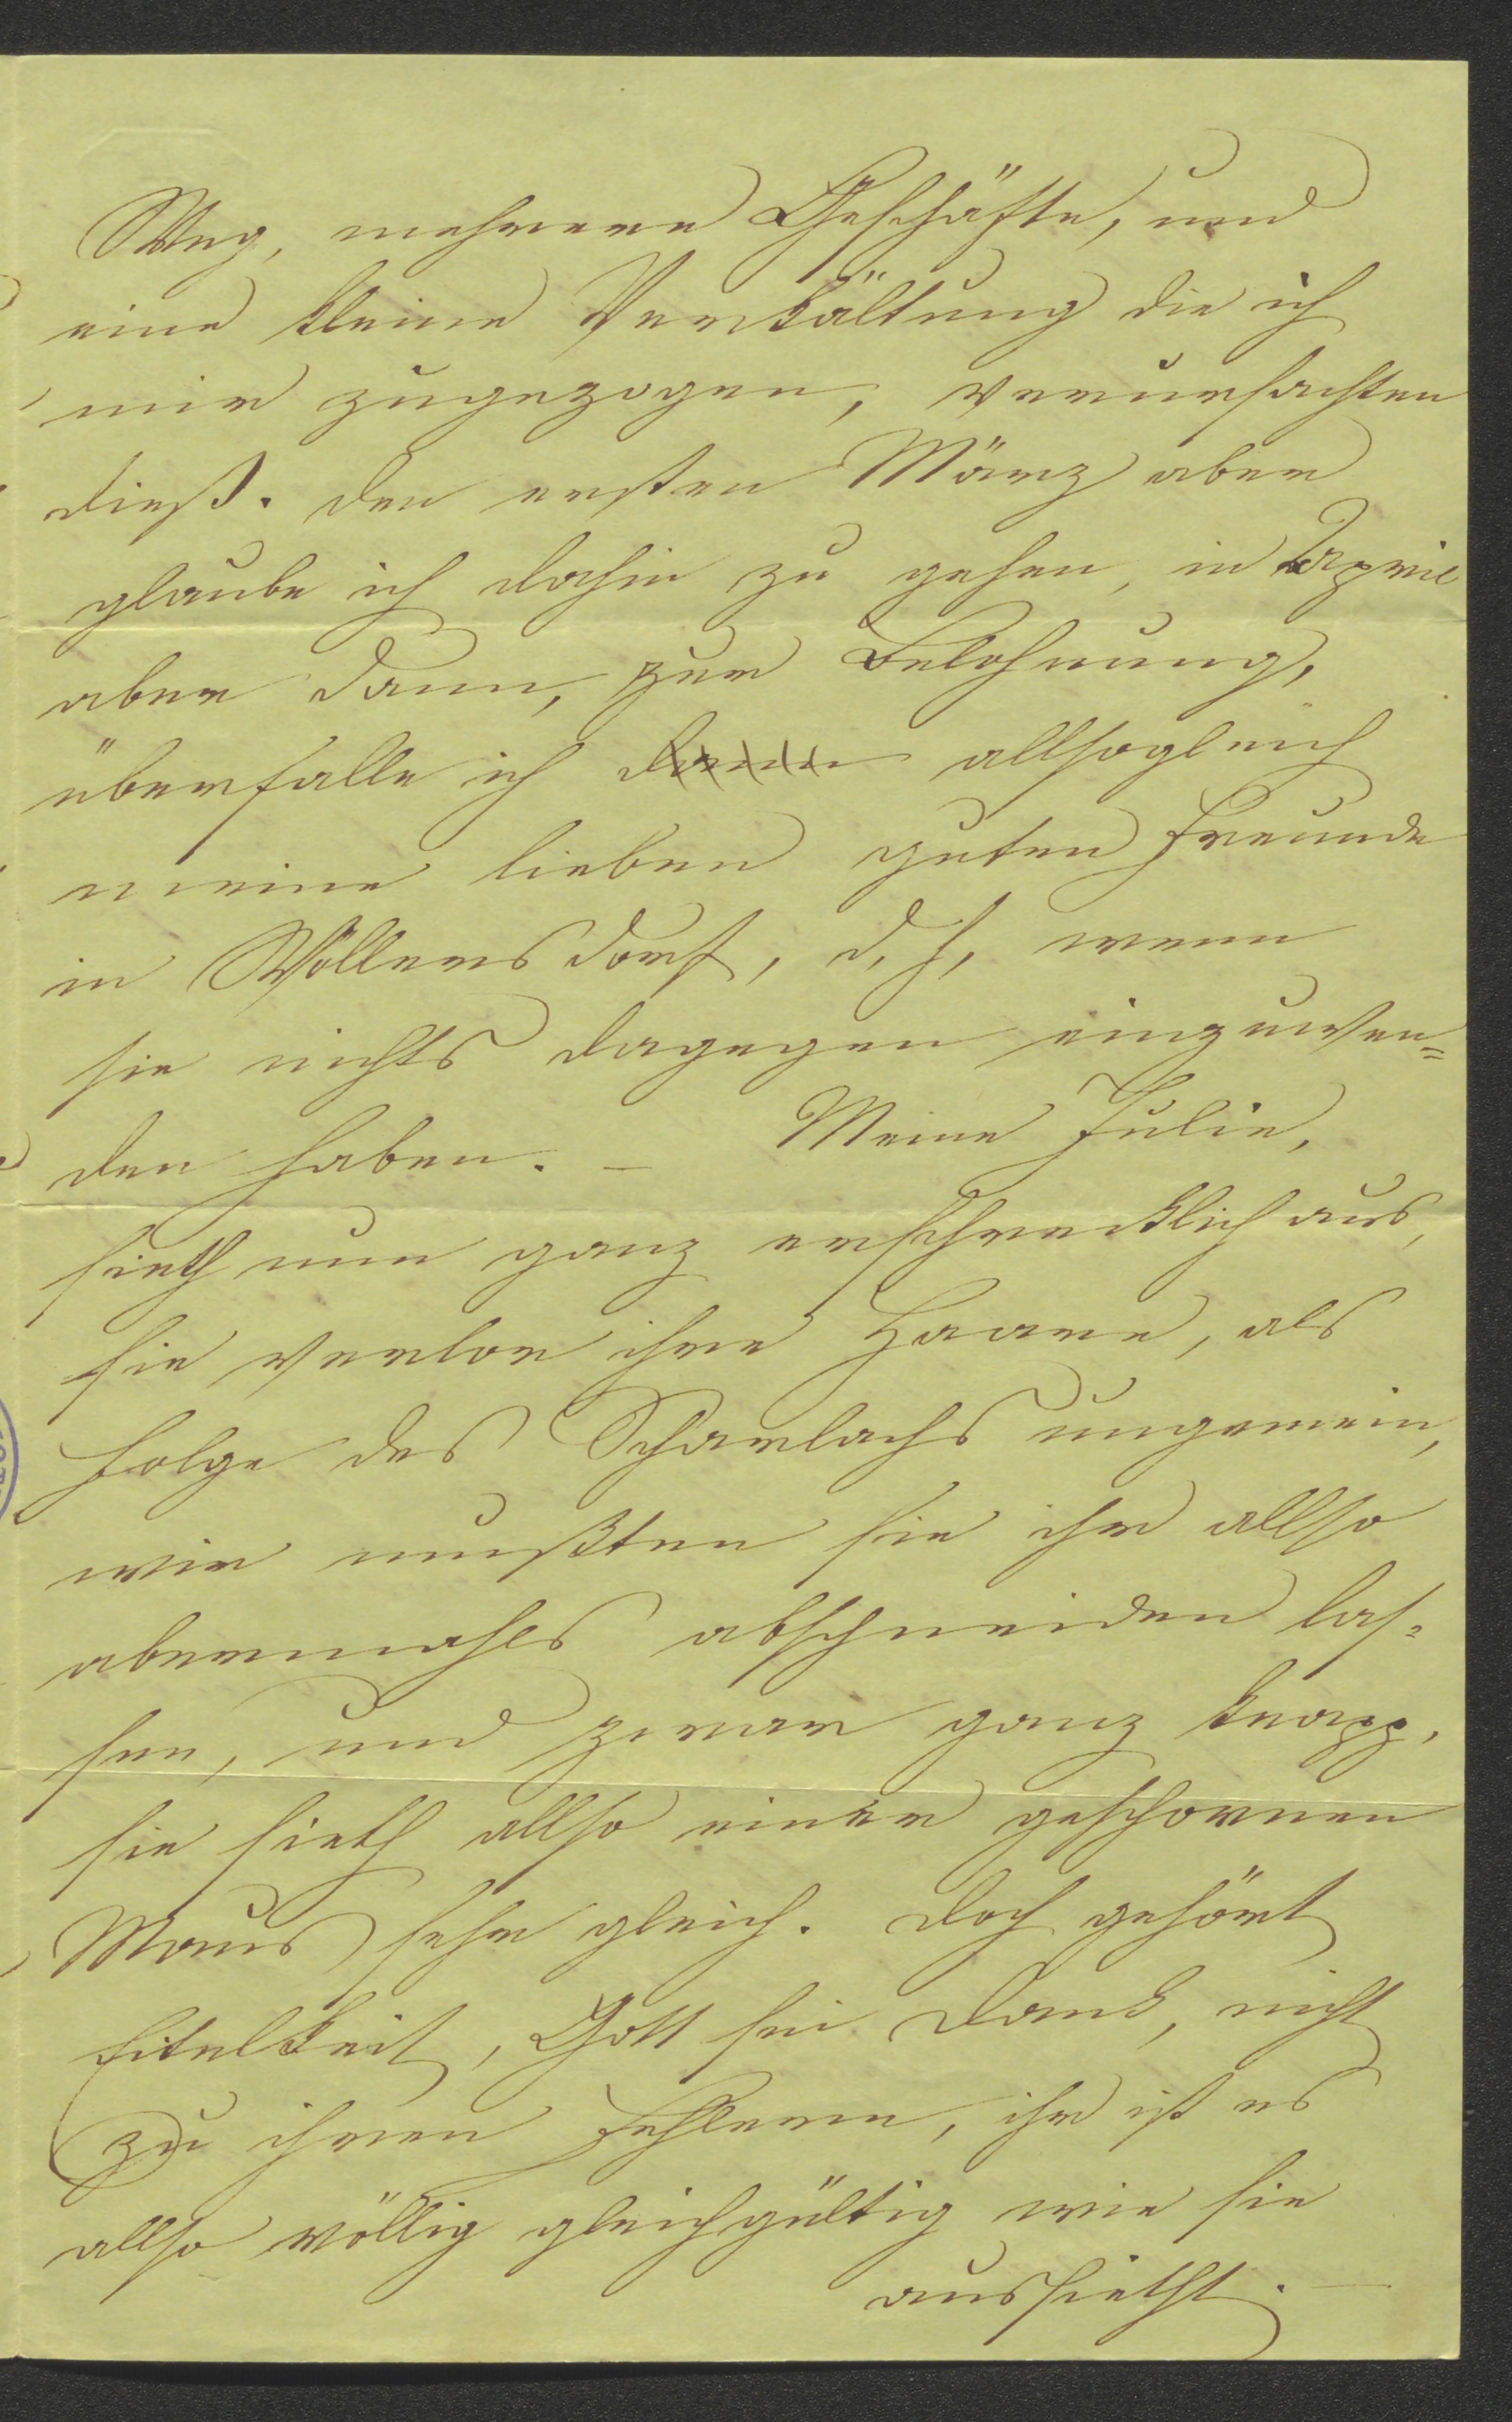 Weg, mehrere Geschäfte, und
eine kleine Verkältung die ich
mir zugezogen, verursachten
dieß. Den ersten März aber
glaube ich dahin zu gehen, in April
aber dann, zur Belohnung,
überfalle ich dann allsogleich
meine lieben guten Freunde
in Wöllersdorf, d. h. wenn
sie nichts dagegen einzuwen=
den haben. – Meine Julie,
sieth nun ganz erschrecklich aus,
sie verlor ihre Haare, als
Folge des Scharlachs ungemein,
wir mußten sie ihr allso
abermahls abschneiden las=
sen, und zwar ganz knapp,
sie sieth allso einer geschornen
Maus sehr gleich. Doch gehört
Eitelkeit, Gott sei Dank, nicht
zu ihren Fehlern, ihr ist es
allso völlig gleichgültig wie sie
aussietht. –